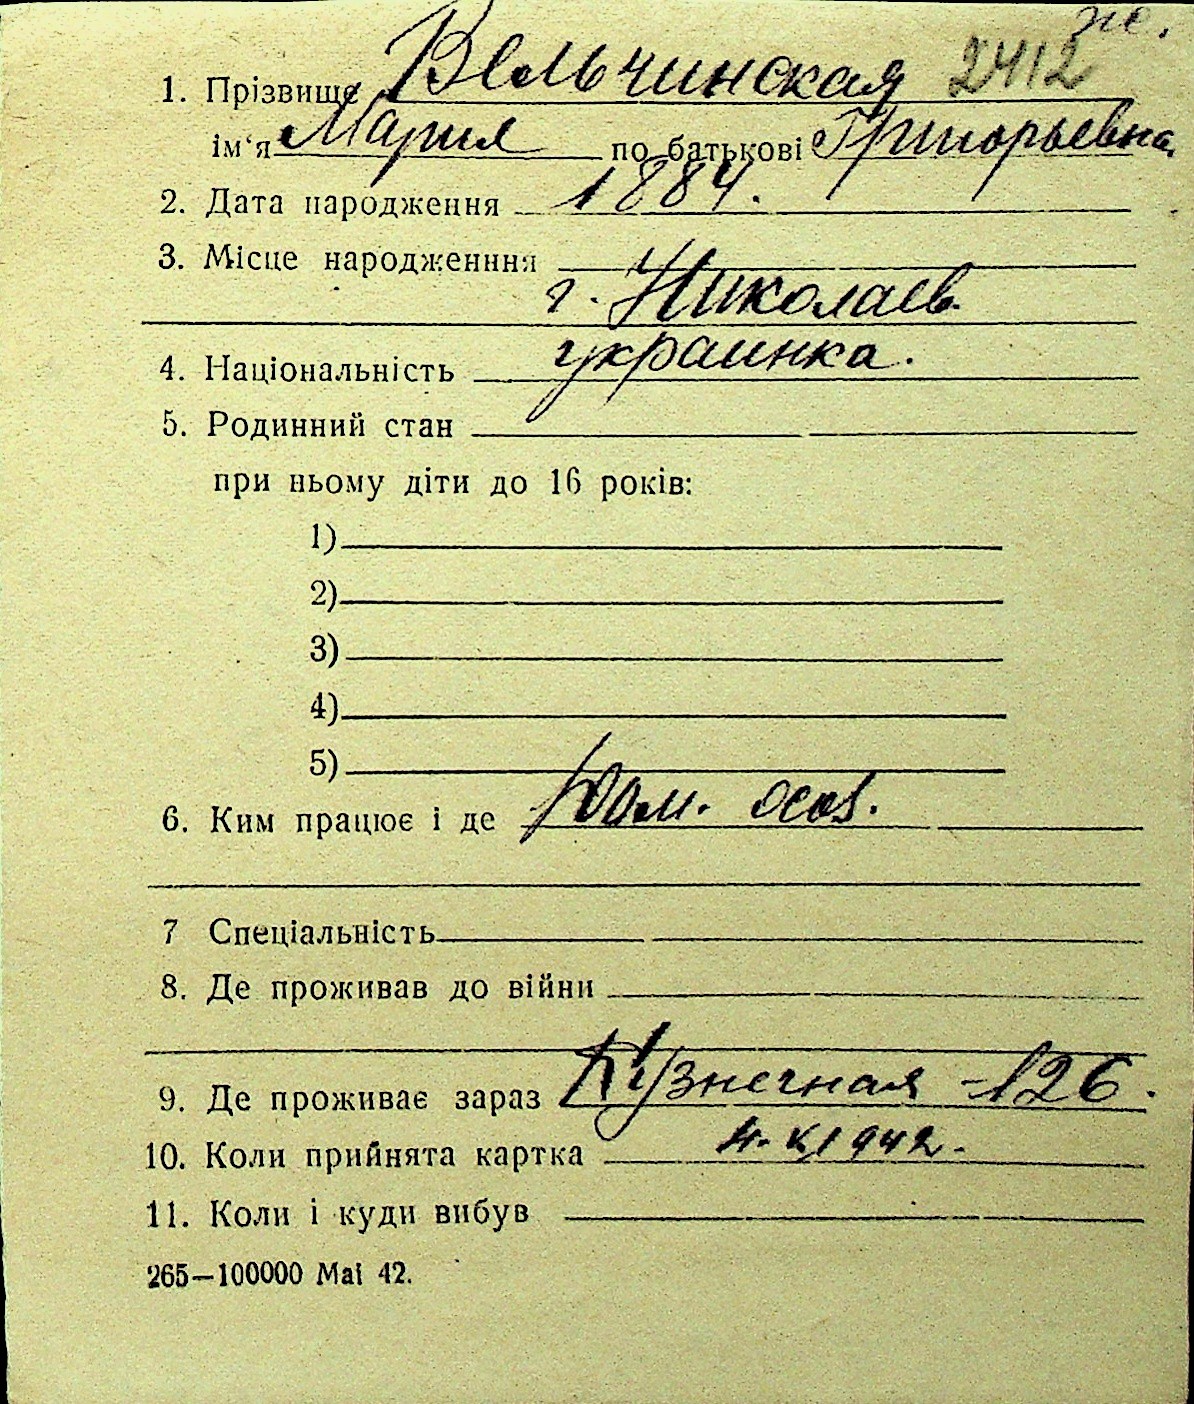 ж.
1. Прізвище Вельчинская 2412
ім‘я Мария по батькові Григорьевна
2. Дата народження 1884.
3. Місце народженння
г. Николаев.
4. Національність украинка.
5. Родинний стан
при ньому діти до 16 років:
1)
2)
3)
4)
5)
6. Ким працює і де Дом. особ.
7 Спеціальність
8. Де проживав до війни
9. Де проживає зараз Кузнечная - 126.
10. Коли прийнята картка 1942.
11. Коли і куди вибув
265—100000 Mai 42.